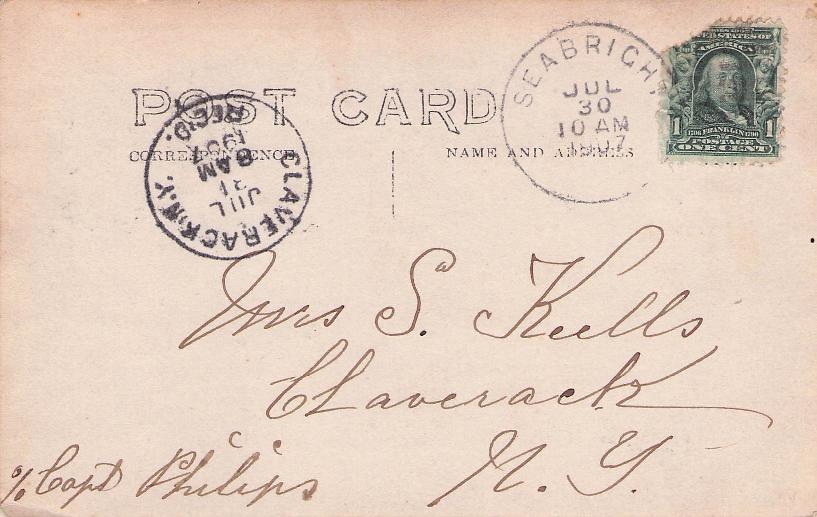 POST CARD
CORRESPONDENCE
NAME AND ADDRESS
SEABRIGHT
JUL
30
10 AM
1907
SERIES 1902
UNITED STATES OF
AMERICA
1 1706 FRANKLIN 1790 1
POSTAGE
ONE CENT
CLAVERACK N.Y.
JUL
31
8 AM
1907
REC'D.
Mrs S. Kells
Claverack
N. Y.
℅ Capt Philips